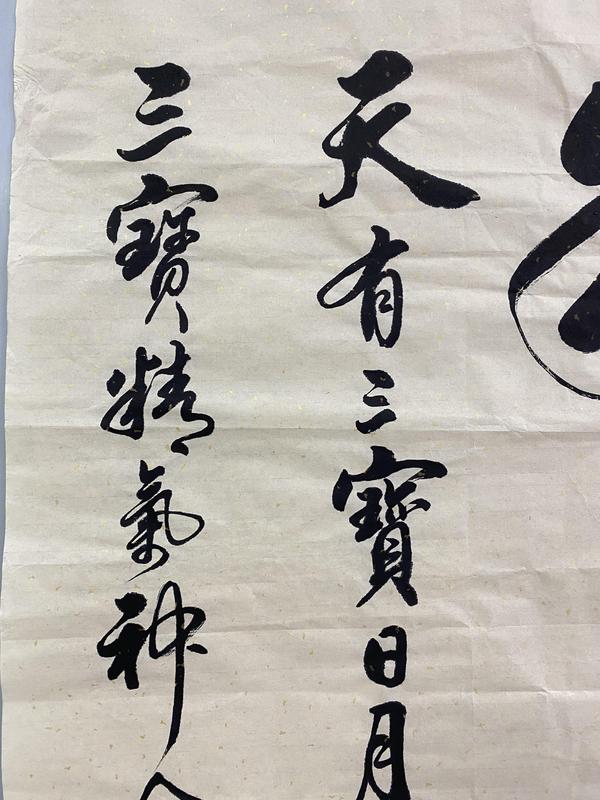 天有三寶日月
三寶精氣神